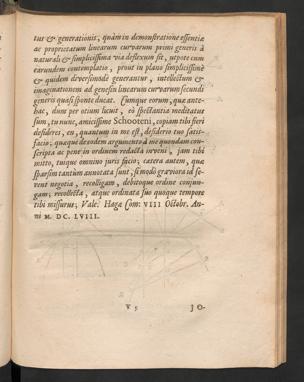 tus & generationis, quàm in demonstratione essentiæ
ac proprietatum linearum curvarum primi generis à
naturali & simplicissima via deflexum sit, utpote cum
earundem contemplatio, prout in plano simplicissimè
& quidem diversimodè generantur, intellectum &
imaginationem ad genesin linearum curvarum secundi
generis quasi sponte ducat. Cumque eorum, quæ ante-
hac, dum per otium licuit, eò spectantia meditatus
sum, tu nunc, amicissime Schooteni, copiam tibi fieri
desideres, en, quantum in me est, desiderio tuo satis-
facio; quæque de eodem argumento à me quondam con-
scripta ac pene in ordinem redacta inveni, jam tibi
mitto, tuique omnino juris facio; cætera autem, quæ
sparsim tantùm annotata sunt, si modò graviora id fe-
rent negotia, recolligam, debitoque ordine conjun-
gam; recollecta, atque ordinata suo quoque tempore
tibi missurus; Vale. Hagæ Com: VIII Octobr. An-
ni M. DC. LVIII.
V 5 JO-